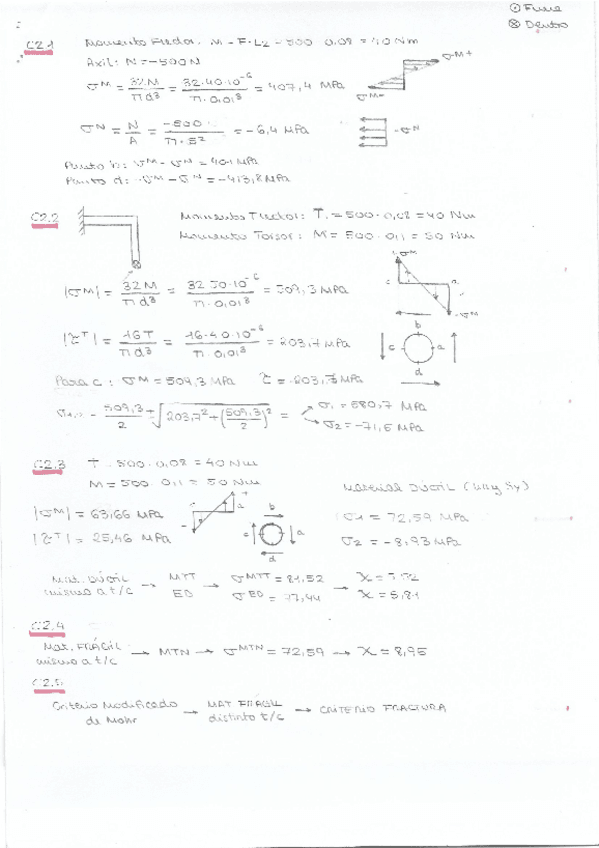 ⊙ Fuera
⊗ Dentro
C2.1 Momento Flector: M = F·L2 = 500 · 0,08 = 40 Nm
Axil: N = -500 N
σM = 32M / πd³ = 32·40·10⁻⁶ / π·0,01³ = 407,4 MPa
σM+
σM-
σN = N / A = -500 / π·5² = -6,4 MPa
-σN
Punto b: σM - σN = 401 MPa
Punto d: -σM - σN = -413,8 MPa
C2.2 Momento Flector: T = 500 · 0,08 = 40 Nm
Momento Torsor: M = 500 · 0,1 = 50 Nm
|σM| = 32M / πd³ = 32·50·10⁻⁶ / π·0,01³ = 509,3 MPa
σM
c a
-σM
|τT| = 16T / πd³ = 16·40·10⁻⁶ / π·0,01³ = 203,7 MPa
b
c a
d
Para c: σM = 509,3 MPa
= 509,3 / 2 ± √(203,7² + (509,3 / 2)²) = σ1 = 580,7 MPa
σ2 = -71,5 MPa
C2.3 T = 500 · 0,08 = 40 Nm
M = 500 · 0,1 = 50 Nm
Material DÚCTIL
|σM| = 63,66 MPa
b
c a
d
σ1 = 72,59 MPa
|τT| = 25,46 MPa
σ2 = -8,93 MPa
Mat. DÚCTIL mismo a t/c → MTT → σMTT = 81,52
ED σED = 77,44 → X = 5,81
C2.4
Mat. FRÁGIL mismo a t/c → MTN → σMTN = 72,59 → X = 8,95
C2.5
Criterio Modificado de Mohr → MAT FRÁGIL distinto t/c → CRITERIO FRACTURA